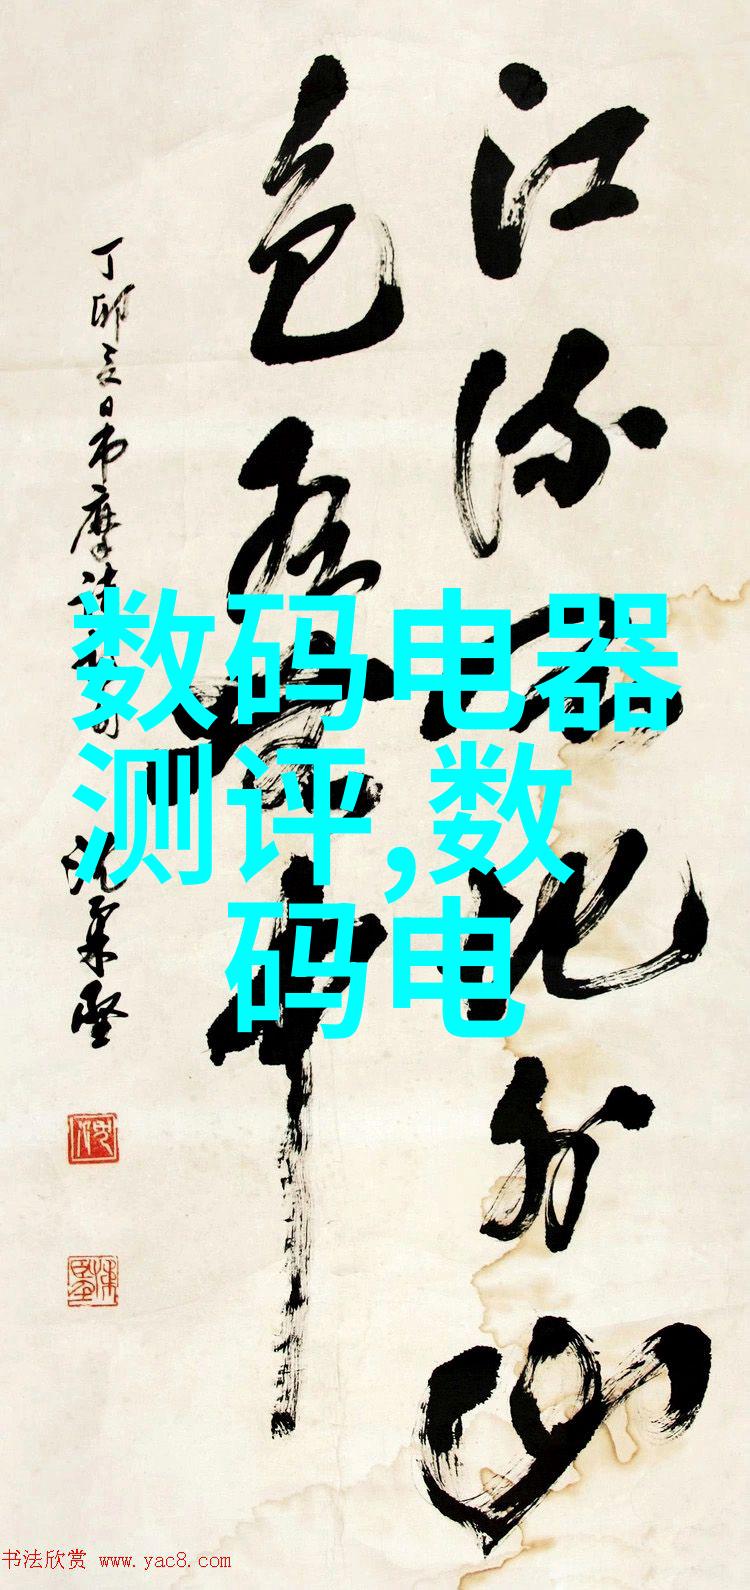 江流天地外山
色有无中
丁卯夏日书摩诘
沈
数码电器
测评,数
码电
书法欣赏 www.yac8.com